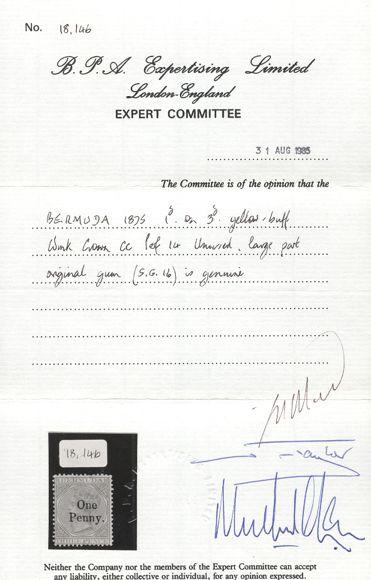 No. 18,146
B.P.A. Expertising Limited
London-England
EXPERT COMMITTEE
31 AUG 1985
The Committee is of the opinion that the
BERMUDA 1875 1d on 3d yellow-buff
Wmk Crown CC Perf 14 Unused, large part
original gum (S.G. 16) is genuine
18,146
BERMUDA
One
Penny.
THREE PENCE
Neither the Company nor the members of the Expert Committee can accept
any liability, either collective or individual, for any opinion expressed.